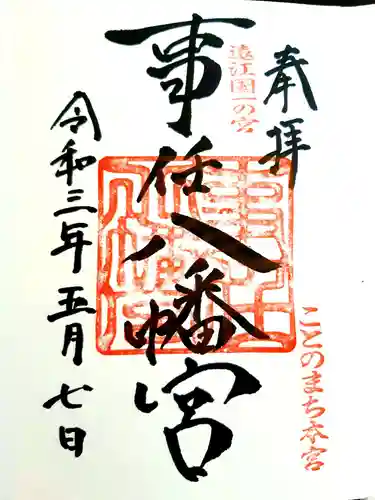 奉拝
遠江国一の宮
ことのまち本宮
事任八幡宮
令和三年五月七日